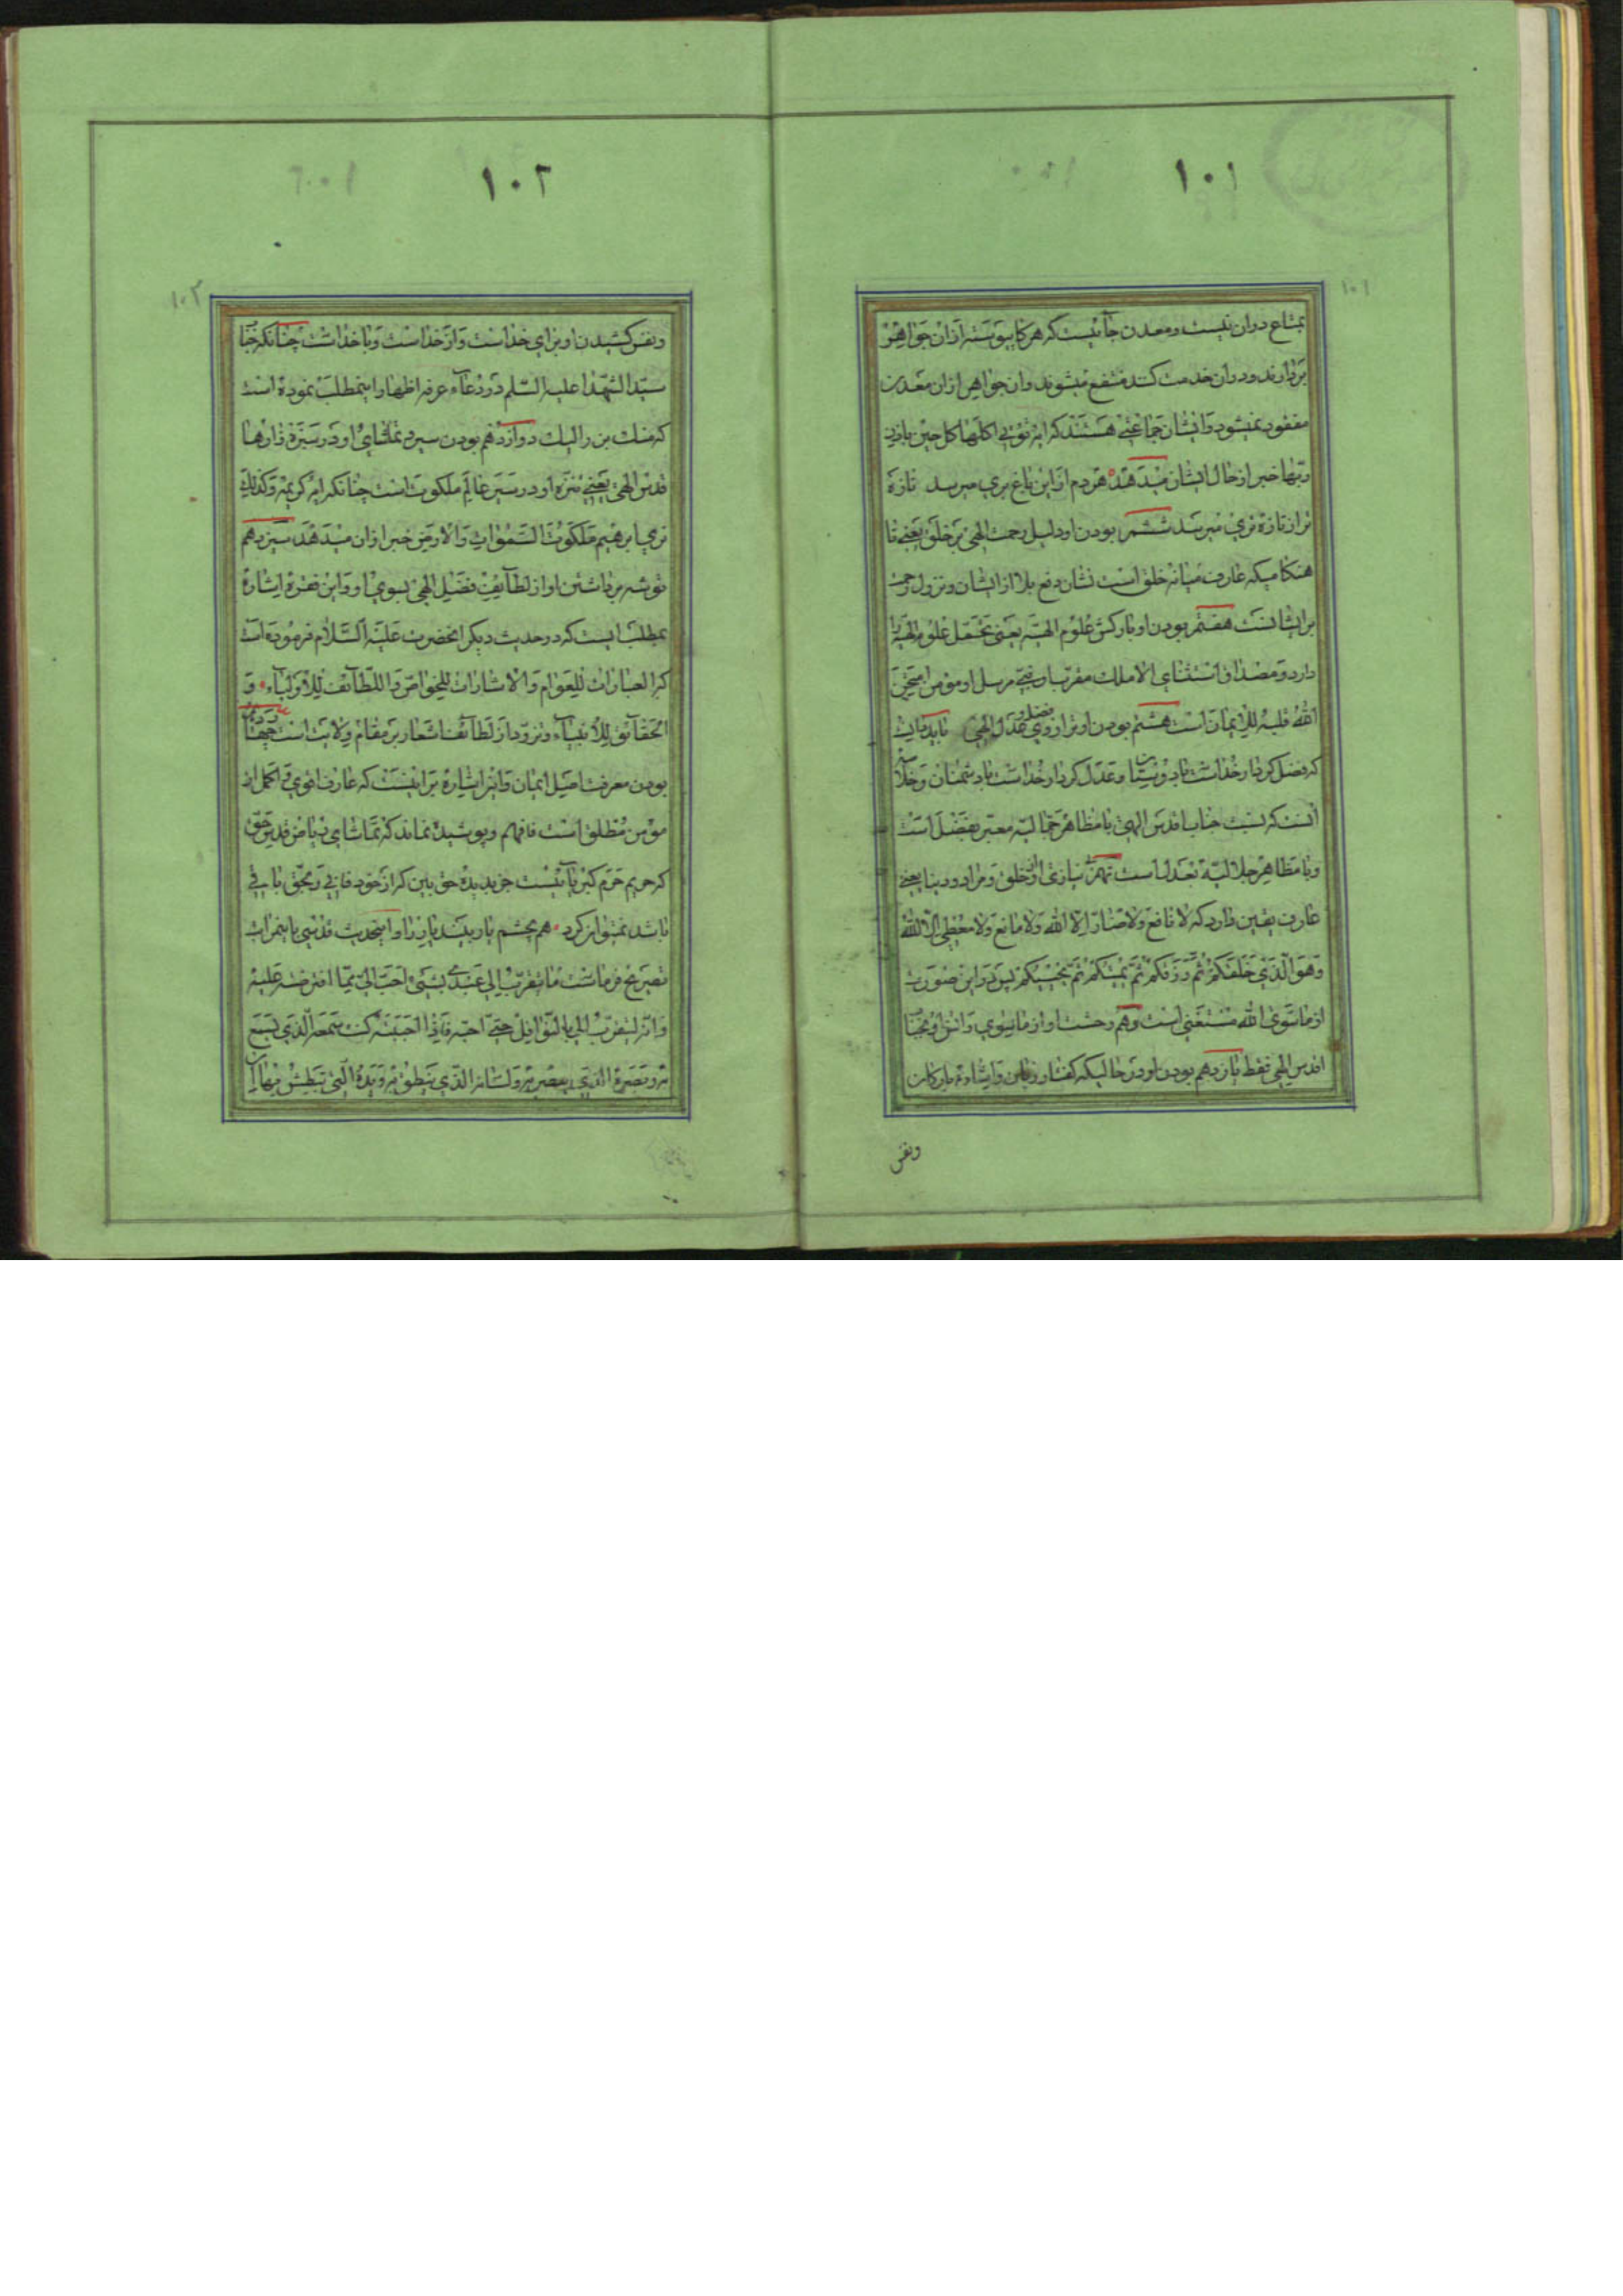 ۱۰۱
بمتاع دران نیست و معدن جائیست که هرکاه پیوسته ازان جواهر
بردارند و دران خدمت کنند منتفع میشوند وان جواهر ازان معدن
مفقود نمیشود و ایشان جماعتی هستند که ایه تؤتی اکلها کل حین باذن
ربها خبر از حال ایشان میدهد هر دم از این باغ بری میرسد تازه
تر از تازه تری میرسد ششم بودن او دلیل رحمت الهی بر خلق یعنی تا
هنکامیکه عارف میانه خلق است نشان دفع بلا از ایشان و نزول رحمت
بر ایشانست هفتم بودن او بارکش علوم الهیه یعنی تحمل علوم الهیه را
دارد و مصداق استثنای الا ملک مقرب او نبی مرسل او مؤمن امتحن
الله قلبه للایمان است هشتم بودن او ترازوی فضل و عدل الهی باید دانست
که فضل کردار خداست با دوستان و عدل کردار خداست با دشمنان و
انست که نسبت جناب اقدس الهی با مظاهر جمالیه معبر بفضل است
و با مظاهر جلالیه بعدل است نهم بی نیازی او از خلق و مراد و دنیا یعنی
عارف یقین دارد که لا نافع ولا ضار الا الله ولا مانع ولا معطی الا الله
وهو الذی خلقکم ثم رزقکم ثم یمیتکم ثم یحییکم پس در این صورت
از ماسوی الله مستغنی است دهم وحشت او از ماسوی و انس او بجناب
اقدس الهی فقط یازدهم بودن او در حالیکه کفتار زبان و اشاره بارکان
ونفس
۱۰۲
ونفس کشیدن او برای خداست و از خداست و با خداست چنانکه جناب
سید الشهدا علیه السلم در دعاء عرفه اظهار اینمطلب نموده است
که منک بن والیک دوازدهم بودن سیر و تماشای او در سبزه زارها
قدس الهی یعنی متنزه او در سیر عالم ملکوت است چنانکه ایه کریمه وکذلک
نری ابرهیم ملکوت السموات والارض خبر ازان میدهد سیزدهم
توشه برداشتن او از لطایف فضل الهی بسوی او و این فقره اشاره
بمطلبی است که در حدیث دیکر انحضرت علیه السلام فرموده است
که العبارات للعوام والاشارات للخواص واللطائف للاولیاء و
الحقائق للانبیاء و تزود از لطائف اشعار بر مقام ولایت است چهاردهم
بودن معرفت اصل ایمان و این اشاره بر اینست که عارف اقوی و اکمل از
مؤمن مطلق است فافهم و پوشیده نماند که تماشای ریاض قدس حق
که حریم حرم کبریائیست جز بدیده حق بین که از خود فانی و بحق باقی
باشد نمیتوان کرد هم بچشم یار بیند یار را و اینحدیث قدسی باینمراتب
تصریح فرماست ما یتقرب الی عبدی بشئ احب الی مما افترضته علیه
وانه لیتقرب الی بالنوافل حتی احبه فاذا احببته کنت سمعه الذی یسمع
به وبصره الذی یبصر به ولسانه الذی ینطق به ویده التی یبطش بها